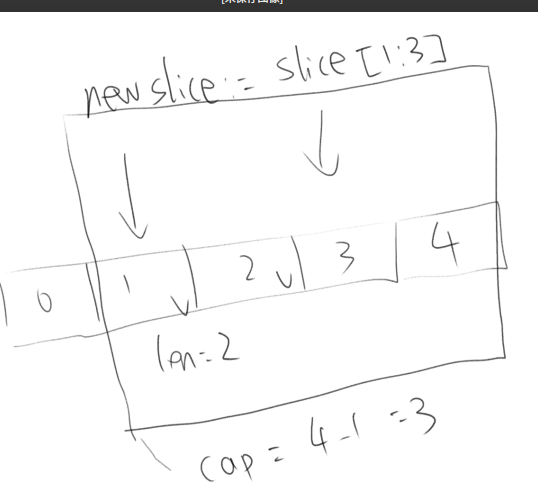 newslice := slice[1:3]
0 1 2 3 4
len=2
cap = 4-1 =3